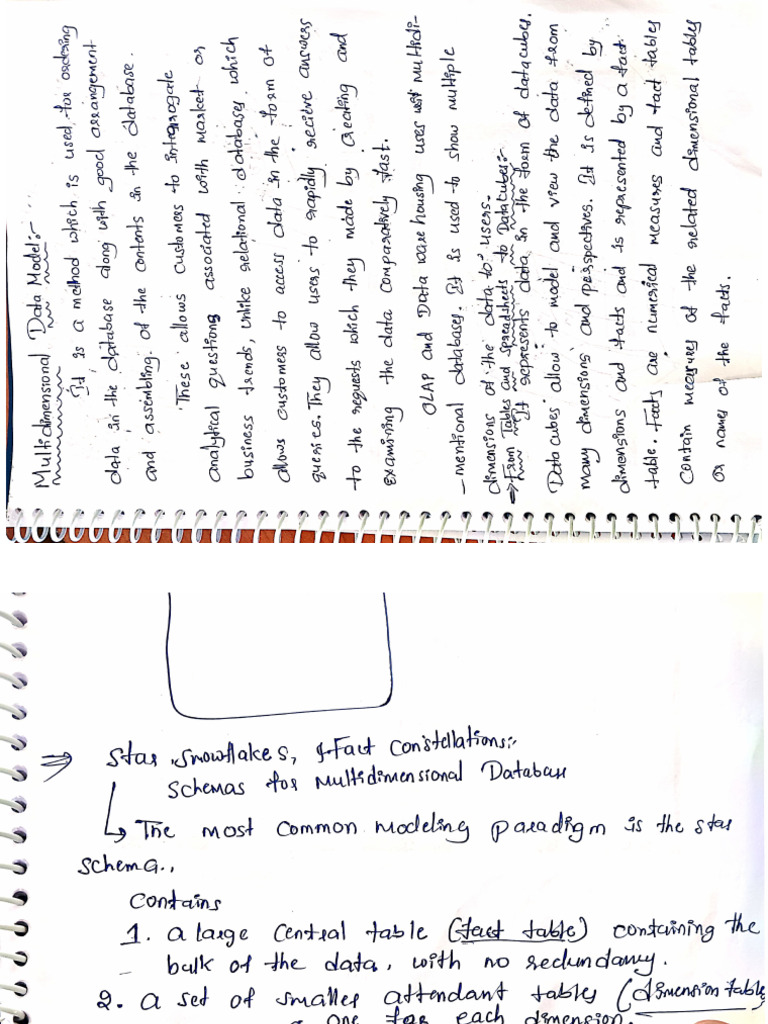 Multidimensional Data Model:-
It is a method which is used for ordering
data in the database along with good arrangement
and assembling of the contents in the database.
These allows customers to interrogate
analytical questions associated with market or
business trends, unlike relational databases which
allows customers to access data in the form of
queries. They allow users to rapidly recieve answers
to the requests which they made by creating and
examining the data comparatively fast.
OLAP and Data ware housing uses Multidi-
-mentional databases. It is used to show multiple
dimensions of the data to users.
⇒ From Tables and Spreadsheets to Datacubes:-
It represents data in the form of datacubes.
Data cubes allow to model and view the data from
many dimensions and perspectives. It is defined by
dimensions and facts and is represented by a fact
table. Facts are numerical measures and fact tables
contain measures of the related dimensional tables
or names of the facts.
⇒ Star, Snowflakes, & Fact Constellations:-
Schemas for Multidimensional Database
↳ The most common modeling paradigm is the star
schema.,
Contains
1. a large central table (fact table) containing the
bulk of the data, with no redundancy.
2. a set of smaller attendant tables (dimension table
one for each dimension.